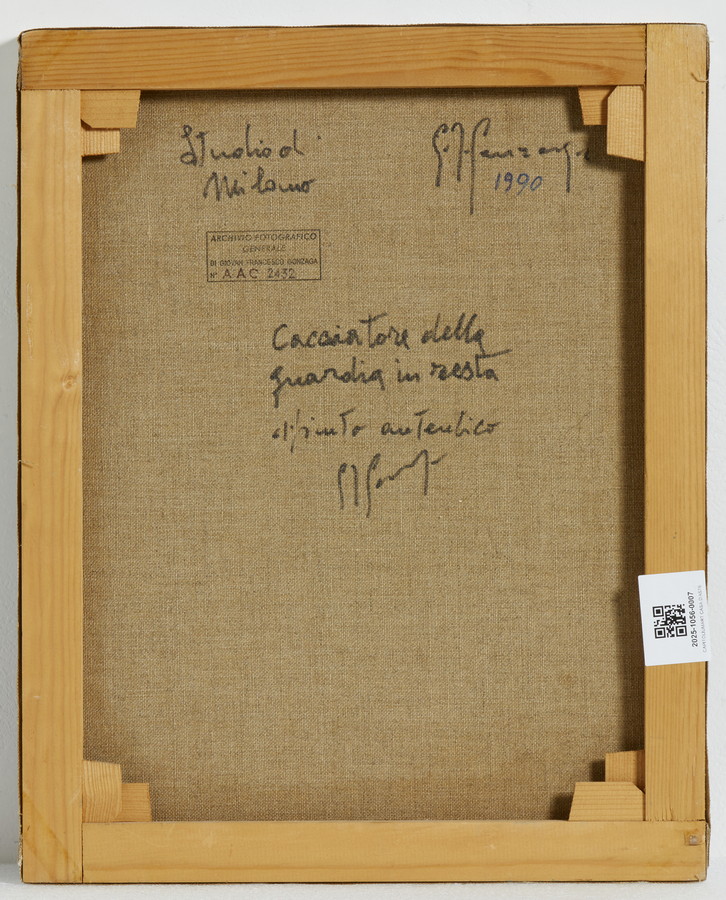 Studio di
Milano
G.F. Gonzaga
1990
ARCHIVIO FOTOGRAFICO
GENERALE
DI GIOVAN FRANCESCO GONZAGA
N° AAC 2432
Cacciatore della
guardia in resta
dipinto autentico
2025-1056-0007